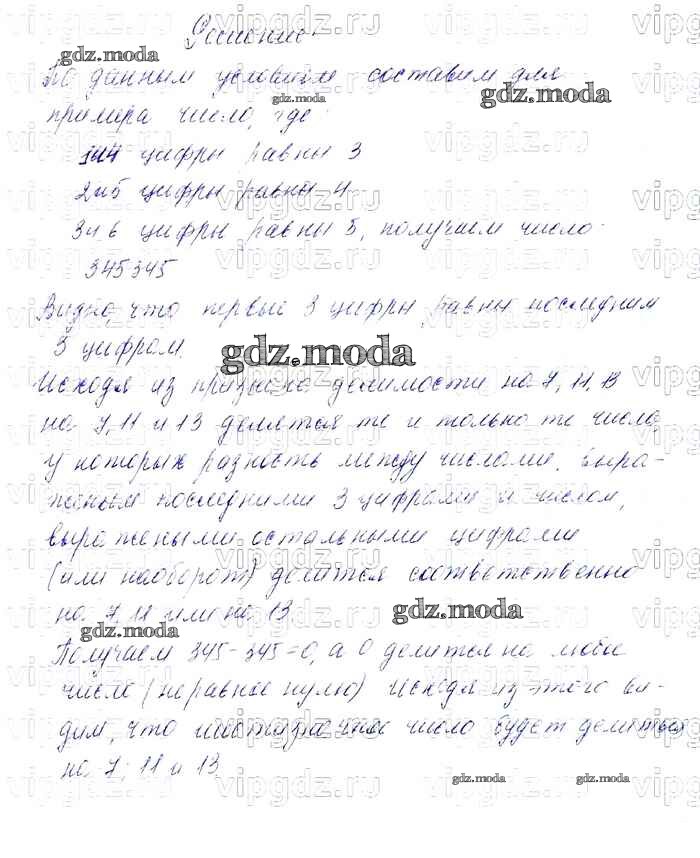 Решение:
По данным условиям составим для
примера число, где:
1и4 цифры равны 3
2и5 цифры равны 4
3и6 цифры равны 5, получаем число:
345345
Видно, что первые 3 цифры равны последним
3 цифрам.
Исходя из признака делимости на 7, 11, 13
на 7, 11 и 13 делятся те и только те числа,
у которых разность между числами, выра-
женым последними 3 цифрами и числом,
выражеными остальными цифрами
(или наоборот) делится соответственно
на 7, 11 или на 13.
Получаем 345-345=0, а 0 делится на любое
число (неравное нулю). Исходя из этого ви-
дим, что шестизначное число будет делиться
на 7, 11 и 13.
gdz.moda
gdz.moda
gdz.moda
gdz.moda
gdz.moda
gdz.moda
gdz.moda
gdz.moda
vipgdz.ru